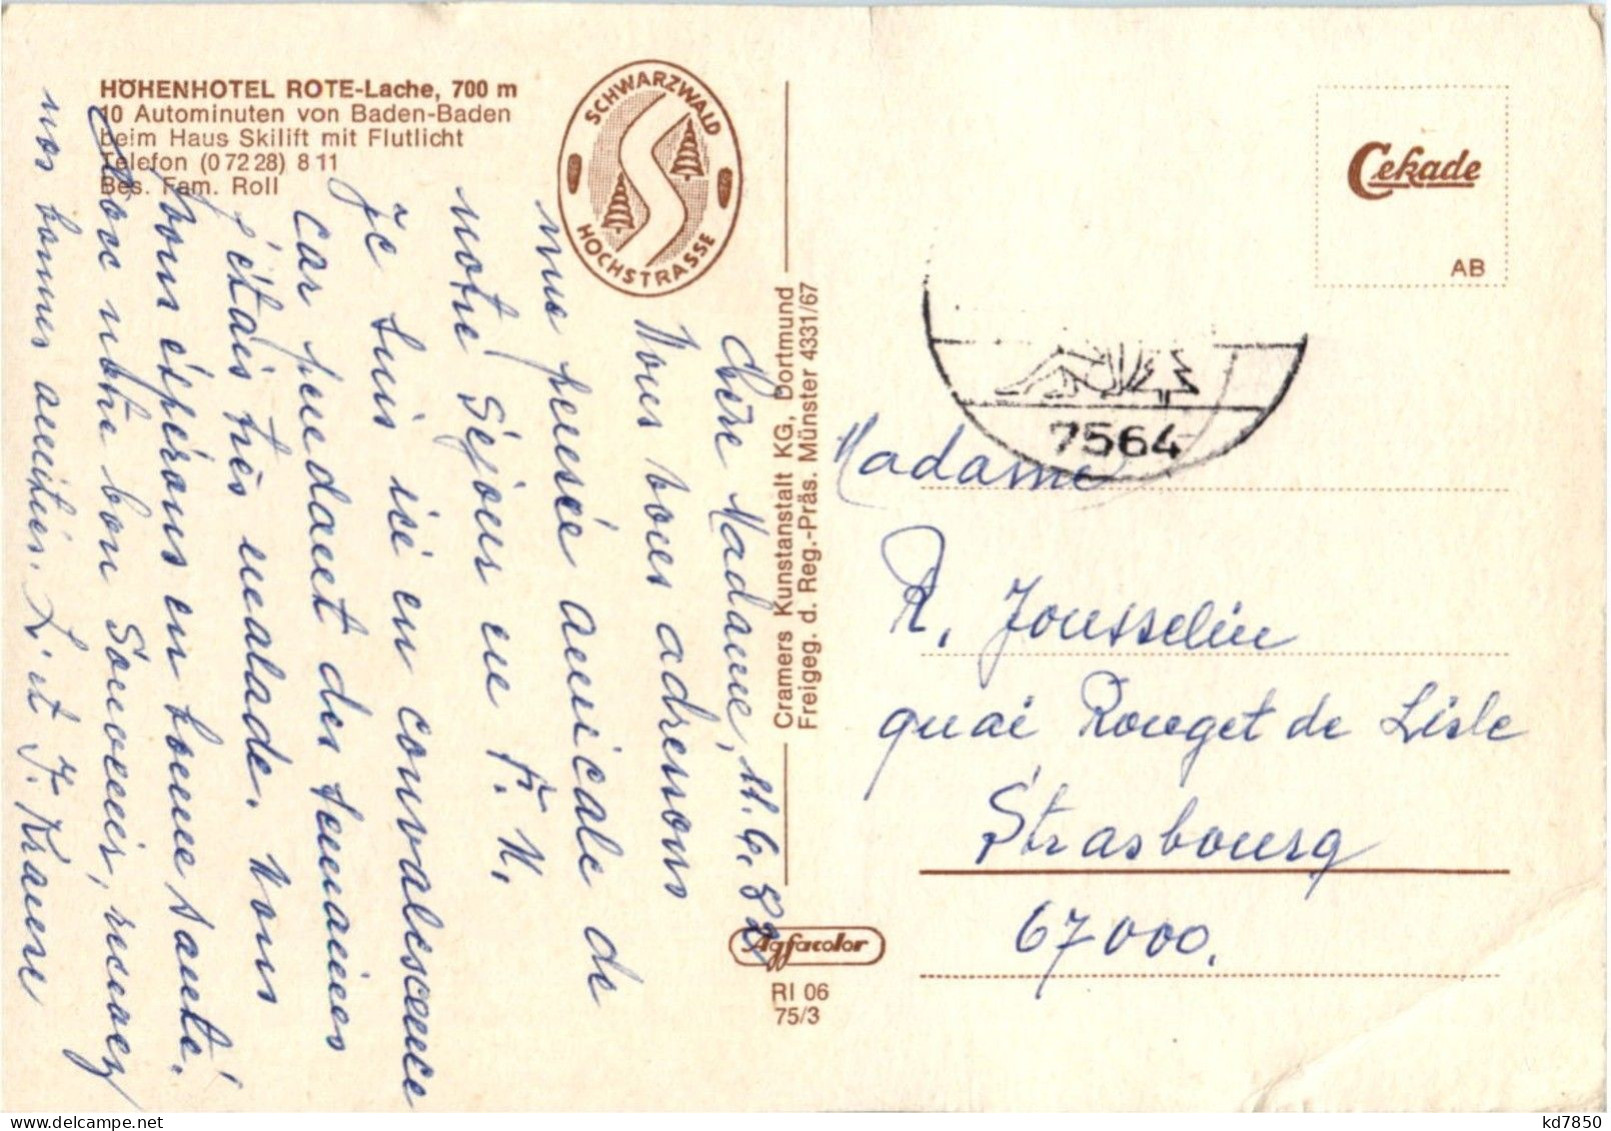 HÖHENHOTEL ROTE-Lache, 700 m
10 Autominuten von Baden-Baden
beim Haus Skilift mit Flutlicht
Telefon (0 72 28) 8 11
Bes. Fam. Roll
SCHWARZWALD
HOCHSTRASSE
Cekade
AB
7564
Cramers Kunstanstalt KG, Dortmund
Freigeg. d. Reg.-Präs. Münster 4331/67
Agfacolor
RI 06
75/3
Chère Madame, 11.6.82
Nous vous adressons
une pensée amicale de
notre Séjour en F. N.
Je suis ici en convalescence
car pendant des semaines
j'étais très malade. Nous
vous éspérons en bonne santé.
Avec notre bon Souvenir, recevez
nos bonnes amitiés. L. et J. Krause
Madame
R. Jousselin
quai Rouget de Lisle
Strasbourg
67000.
delcampe.net
kd7850